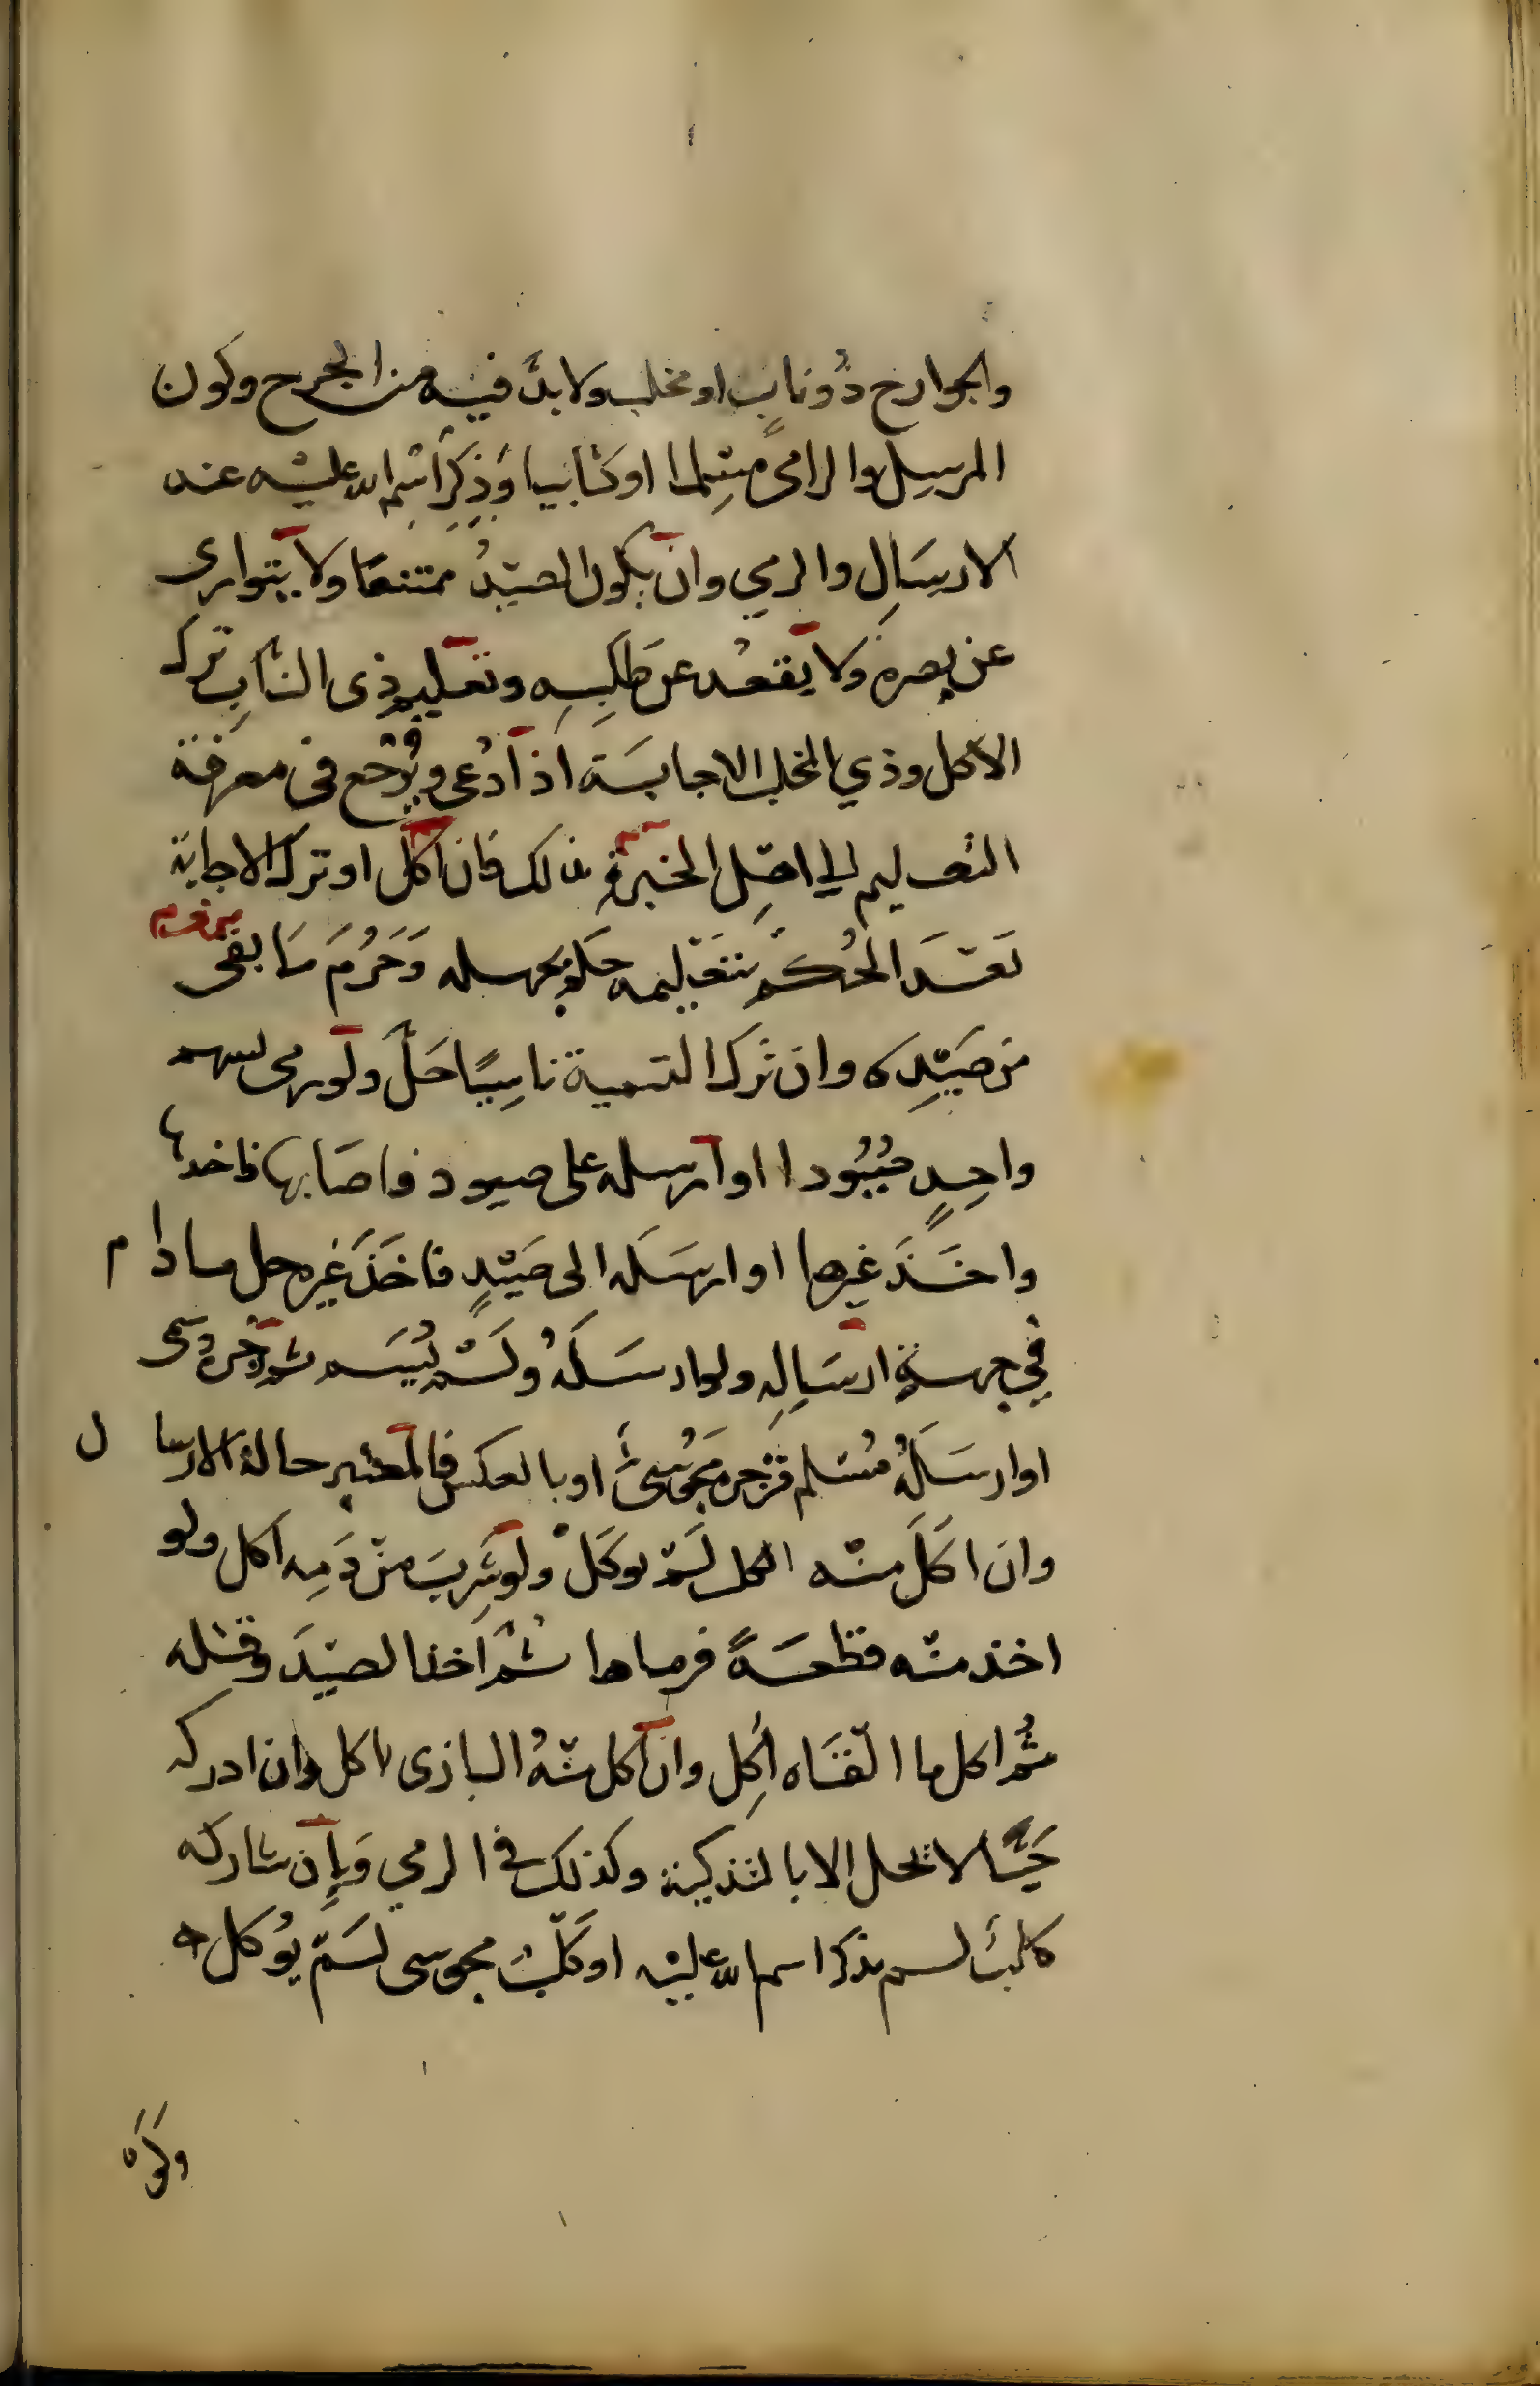 والجوارح ذُو نابٍ او مخلب ولا بدَّ فيه من الجرح وكون
المرسِل والرامي مسلما او كتابيا وَذِكرُ اسْمِ الله عليْه عند
الارسَالِ والرمي وان يكون الصيْدُ ممتنعًا ولا يتوارى
عن بصره ولا يقعُد عن طلَبِه وتعليم ذى النابِ ترك
الاكل وذي المخلب الاجابَة اذا دُعى ويُرْجع في معرفة
التعليم الى اهْلِ الخبرة بذلك فان اكل او ترك الاجابة
بَعْدَ الحُكْم بتعْليمه حكم بجهله وَحَرُمَ مَا بقى
من صَيْدِه وان ترك التسمية ناسِيًا حَلَّ ولو رمى بسهم
واحِدٍ صُيُودا او ارسله على صيود فاصَابها فاخذها
واخَذَ غيرها او ارسَله الى صَيْدٍ فاخَذَ غيره حل مادام
في جهة ارسَالِهِ ولو ارسَلَهُ ولَمْ يُسَم ثم زجره وسمى
او ارسَلَهُ مُسْلم فزجره مَجُوسىٌّ او بالعكس فالمعتبر حالة الارسال
وان اكَلَ منْه الكلب لَمْ يوكَلْ ولو شَرِبَ منْ دَمِه اكل ولو
اخذ منْه قطعَةً فرماها ثُمَّ اخذ الصيْدَ وقتله
ثُم اكل ما القَاه اُكِل وان اكل منْهُ البازى اكل وان ادركه
حَيًّا لا يحل الا بالتذكية وكذلك في الرمي وَاِن شاركه
كلبٌ لم يذكر اسم الله عليْه او كَلْبُ مجوسى لَمْ يُوكل
وَلَوْ